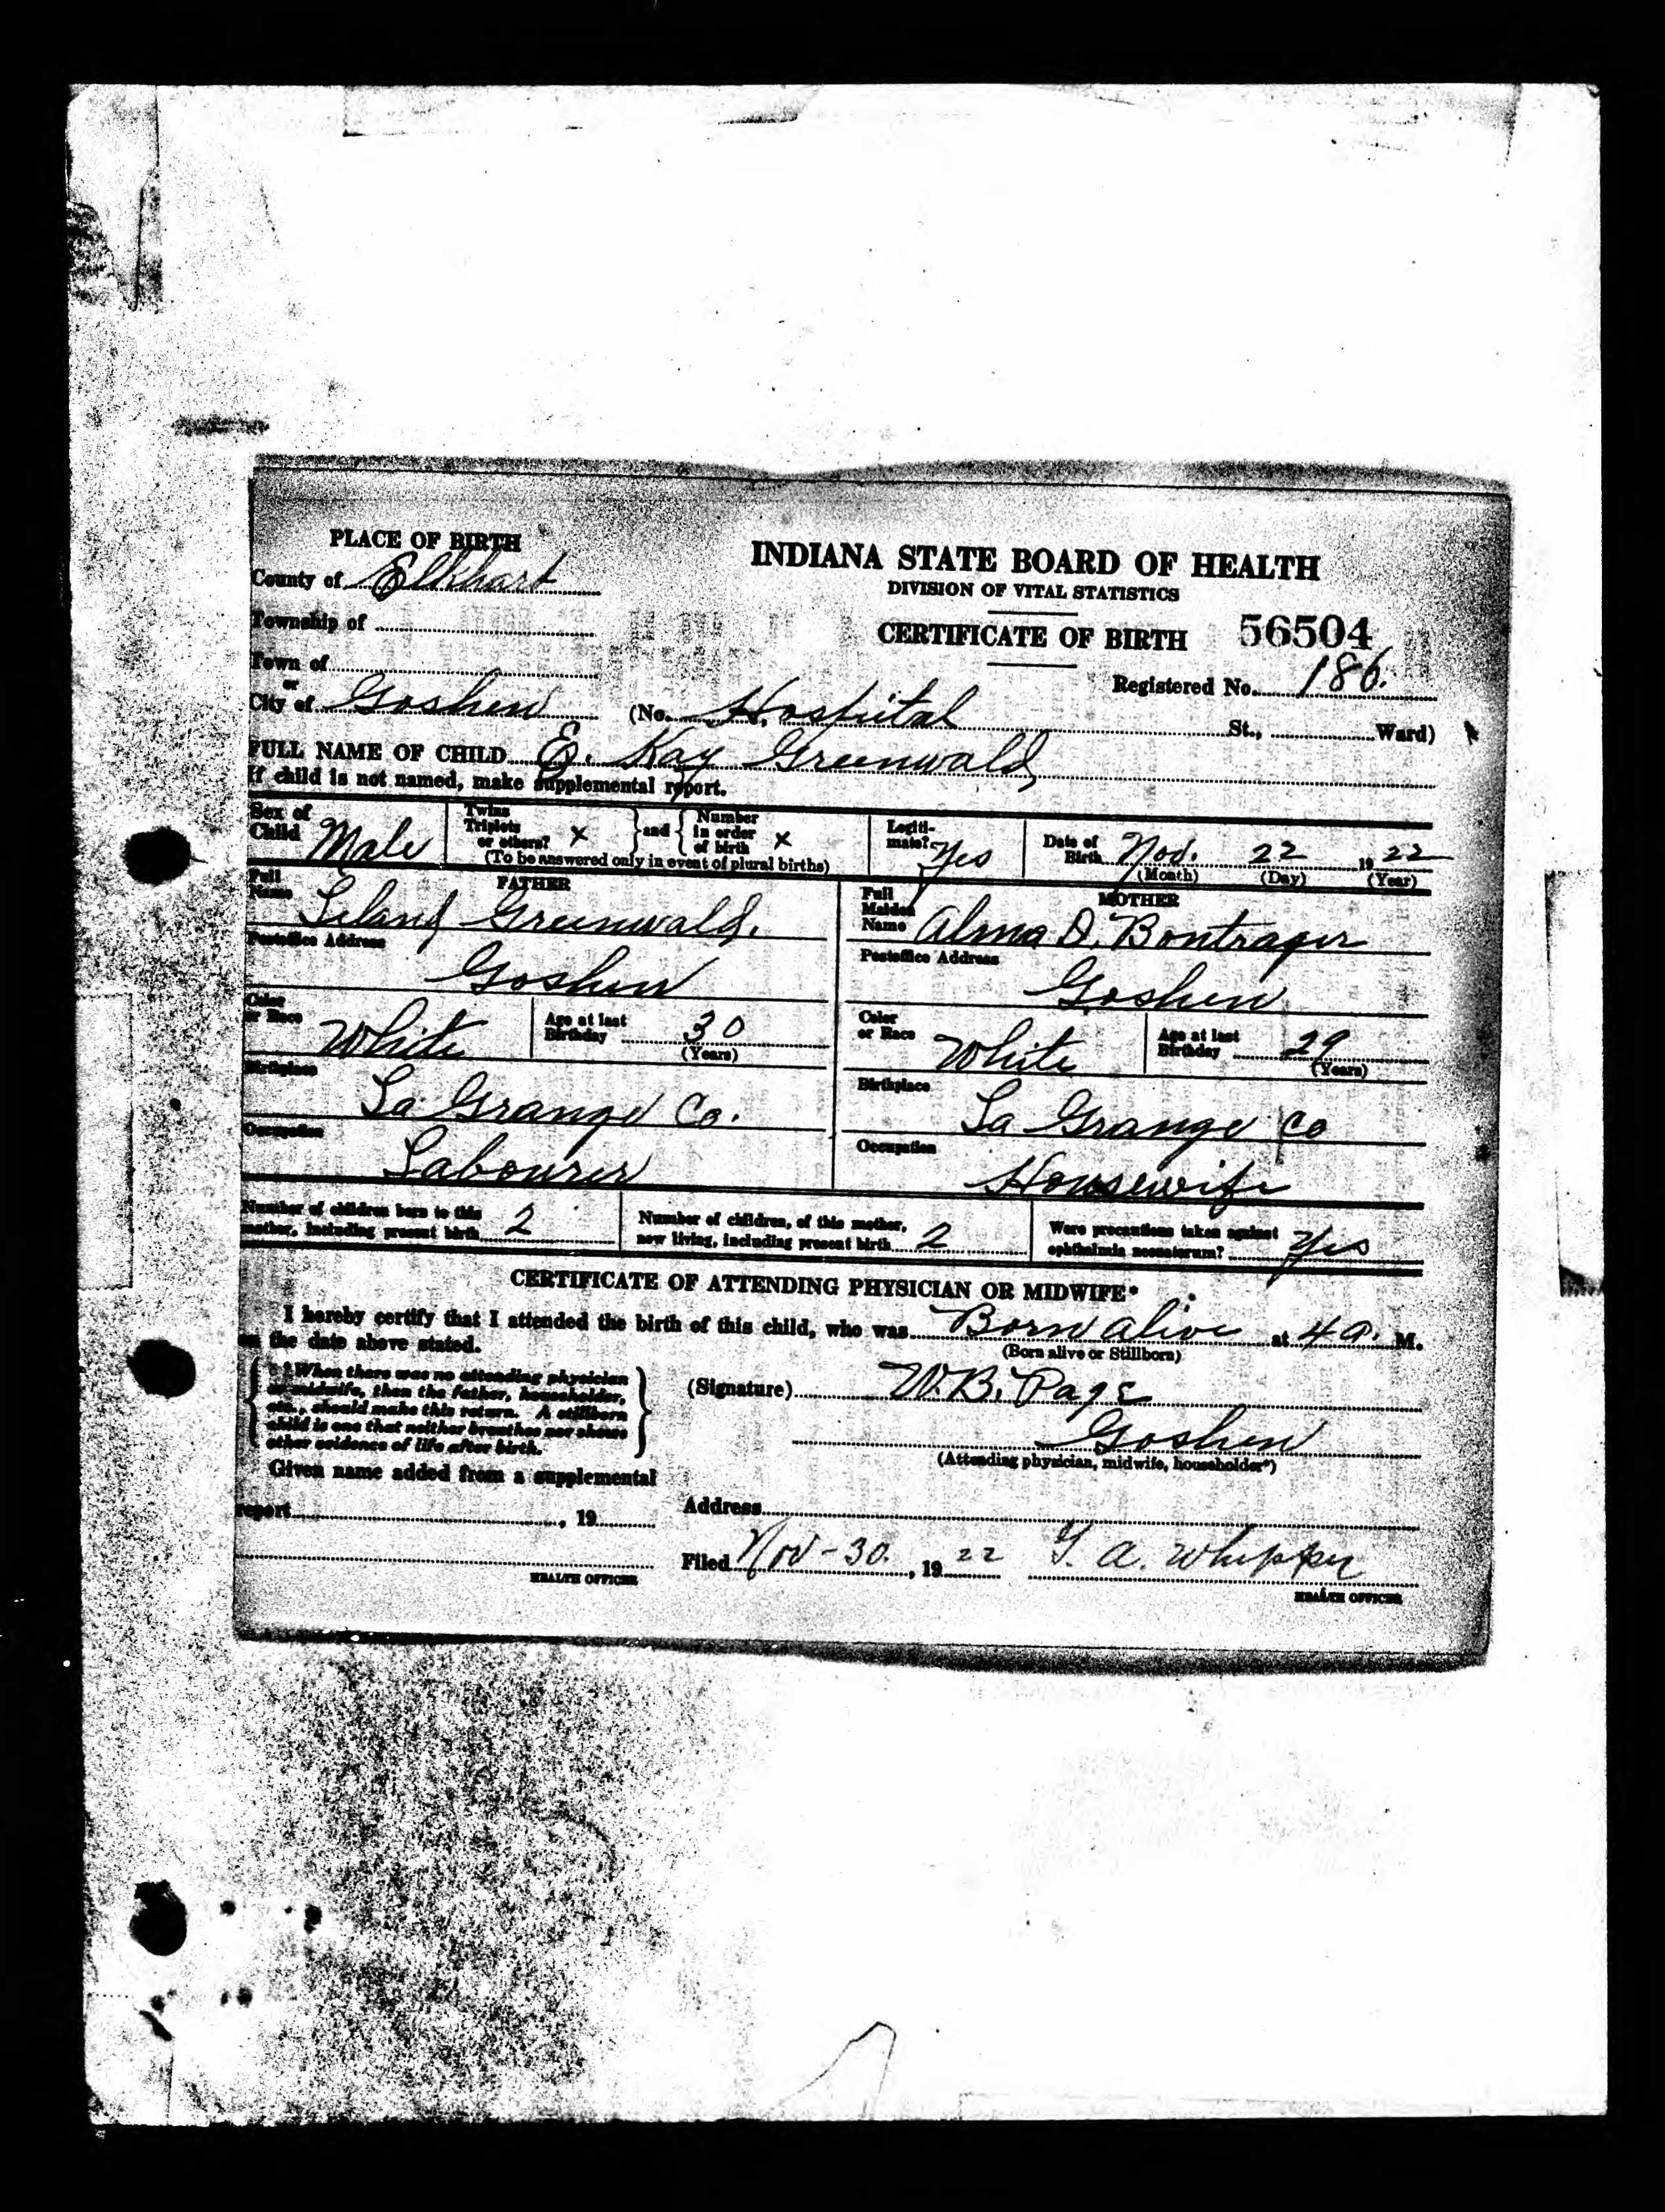 PLACE OF BIRTH
County of Elkhart
Township of
Town of
or
City of Goshen
INDIANA STATE BOARD OF HEALTH
DIVISION OF VITAL STATISTICS
CERTIFICATE OF BIRTH 56504
Registered No. 186.
(No. Hospital St., Ward)
FULL NAME OF CHILD E. Kay Greenwald
If child is not named, make supplemental report.
Sex of Child Male
Twins Triplets or others? x and Number in order of birth x
(To be answered only in event of plural births)
Legitimate? Yes
Date of Birth Nov. 22 1922
(Month) (Day) (Year)
FATHER
Full Name Leland Greenwald.
Postoffice Address
Goshen
Color or Race White
Age at last Birthday 30
(Years)
Birthplace
La Grange Co.
Occupation
Labourer
MOTHER
Full Maiden Name Alma D. Bontrager
Postoffice Address
Goshen
Color or Race White
Age at last Birthday 29
(Years)
Birthplace
La Grange Co
Occupation
Housewife
Number of children born to this mother, including present birth 2
Number of children, of this mother, now living, including present birth 2
Were precautions taken against ophthalmia neonatorum? Yes
CERTIFICATE OF ATTENDING PHYSICIAN OR MIDWIFE*
I hereby certify that I attended the birth of this child, who was Born alive at 4 a. M.
on the date above stated.
(Born alive or Stillborn)
*When there was no attending physician
or midwife, then the father, householder,
etc., should make this return. A stillborn
child is one that neither breathes nor shows
other evidence of life after birth.
(Signature) W.B. Page
Goshen
(Attending physician, midwife, householder*)
Given name added from a supplemental
report , 19
Address
Filed Nov-30. , 19 22
HEALTH OFFICER
HEALTH OFFICER